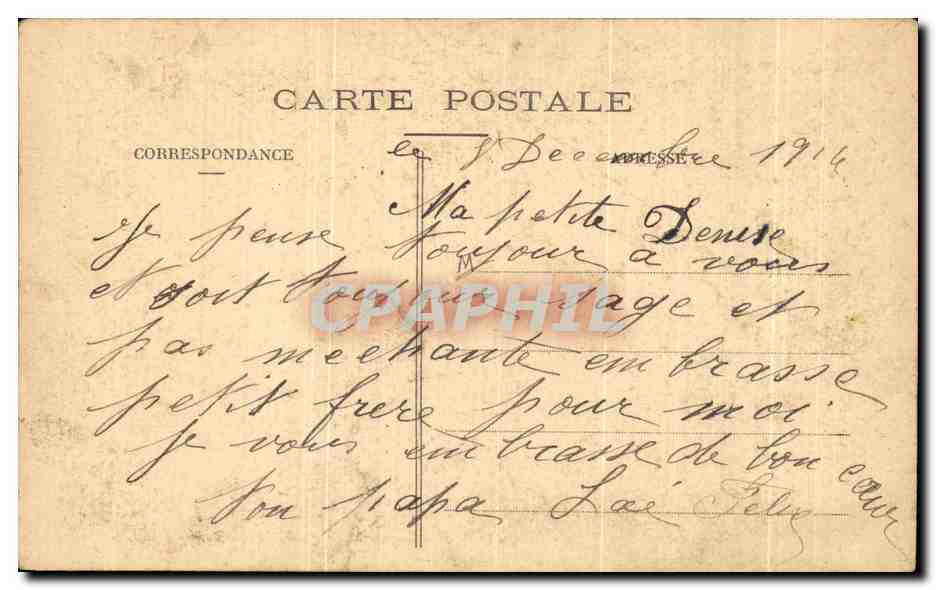 CARTE POSTALE
CORRESPONDANCE
ADRESSE
le 8 Decembre 1914
Ma petite Denise
Je pense toujour a vous
M
et soit toujour sage et
CPAPHIL
pas mechante embrasse
petit frere pour moi.
je vous embrasse de bon cœur
ton papa Felix